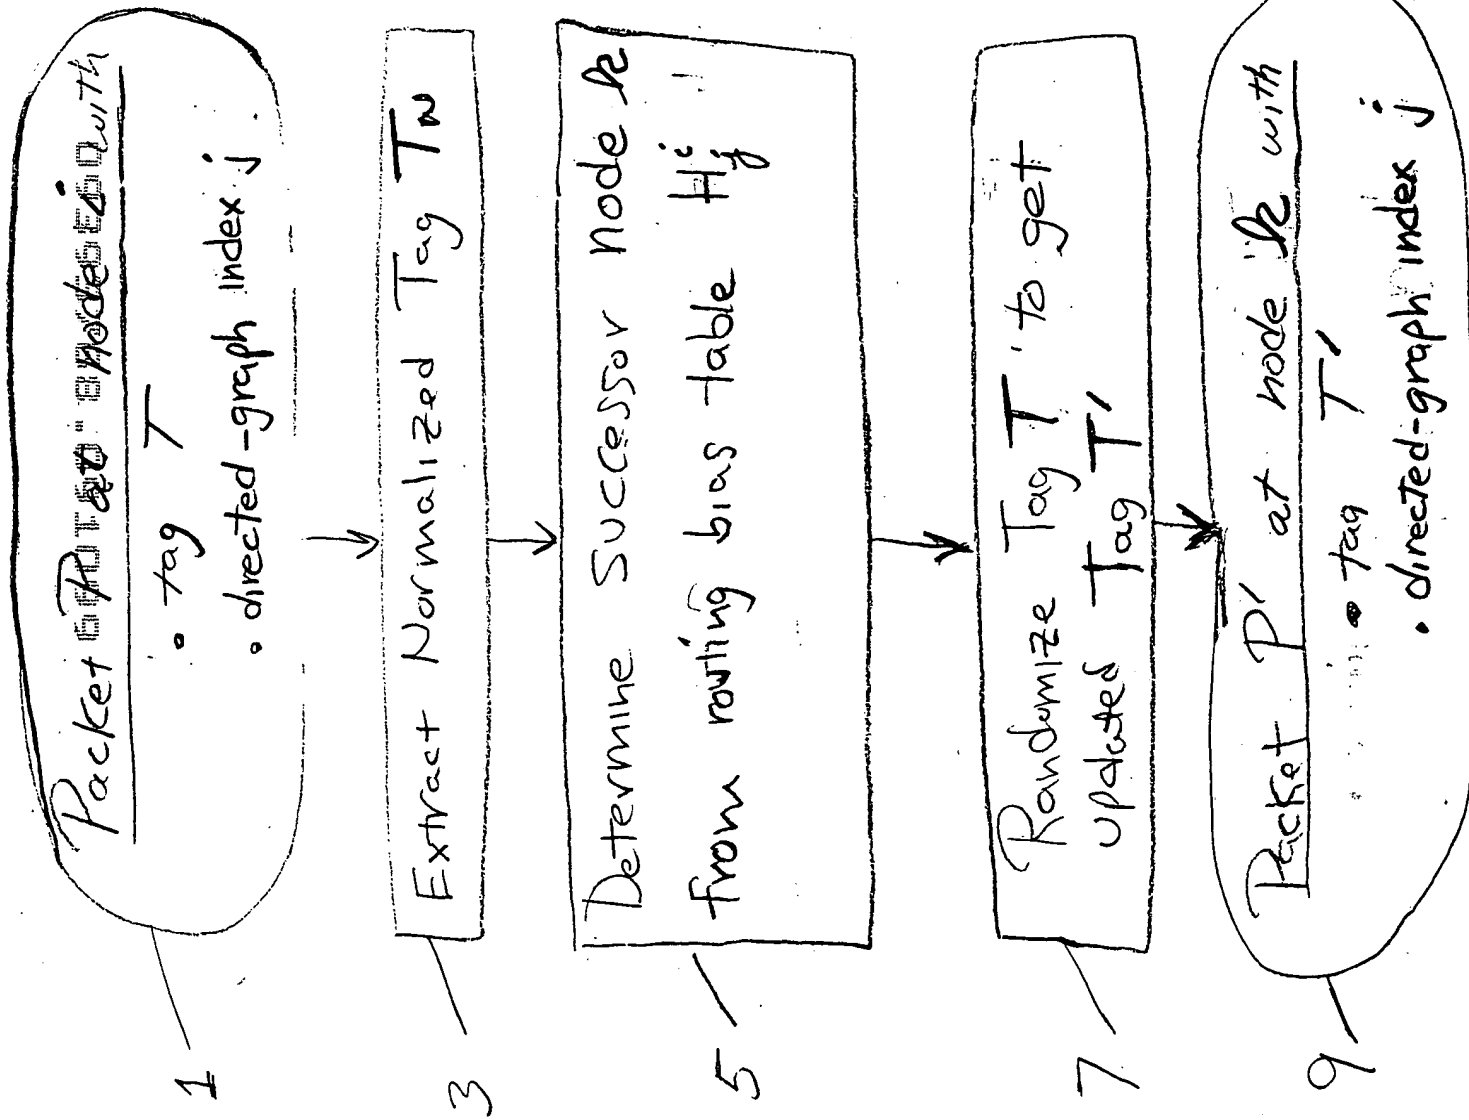 Packet P at node i with
• tag T
• directed-graph index j
1
Extract Normalized Tag TN
3
Determine successor node k
from routing bias table H^i_j
5
Randomize Tag T to get
updated Tag T'
7
Packet P' at node k with
• tag T'
• directed-graph index j
9